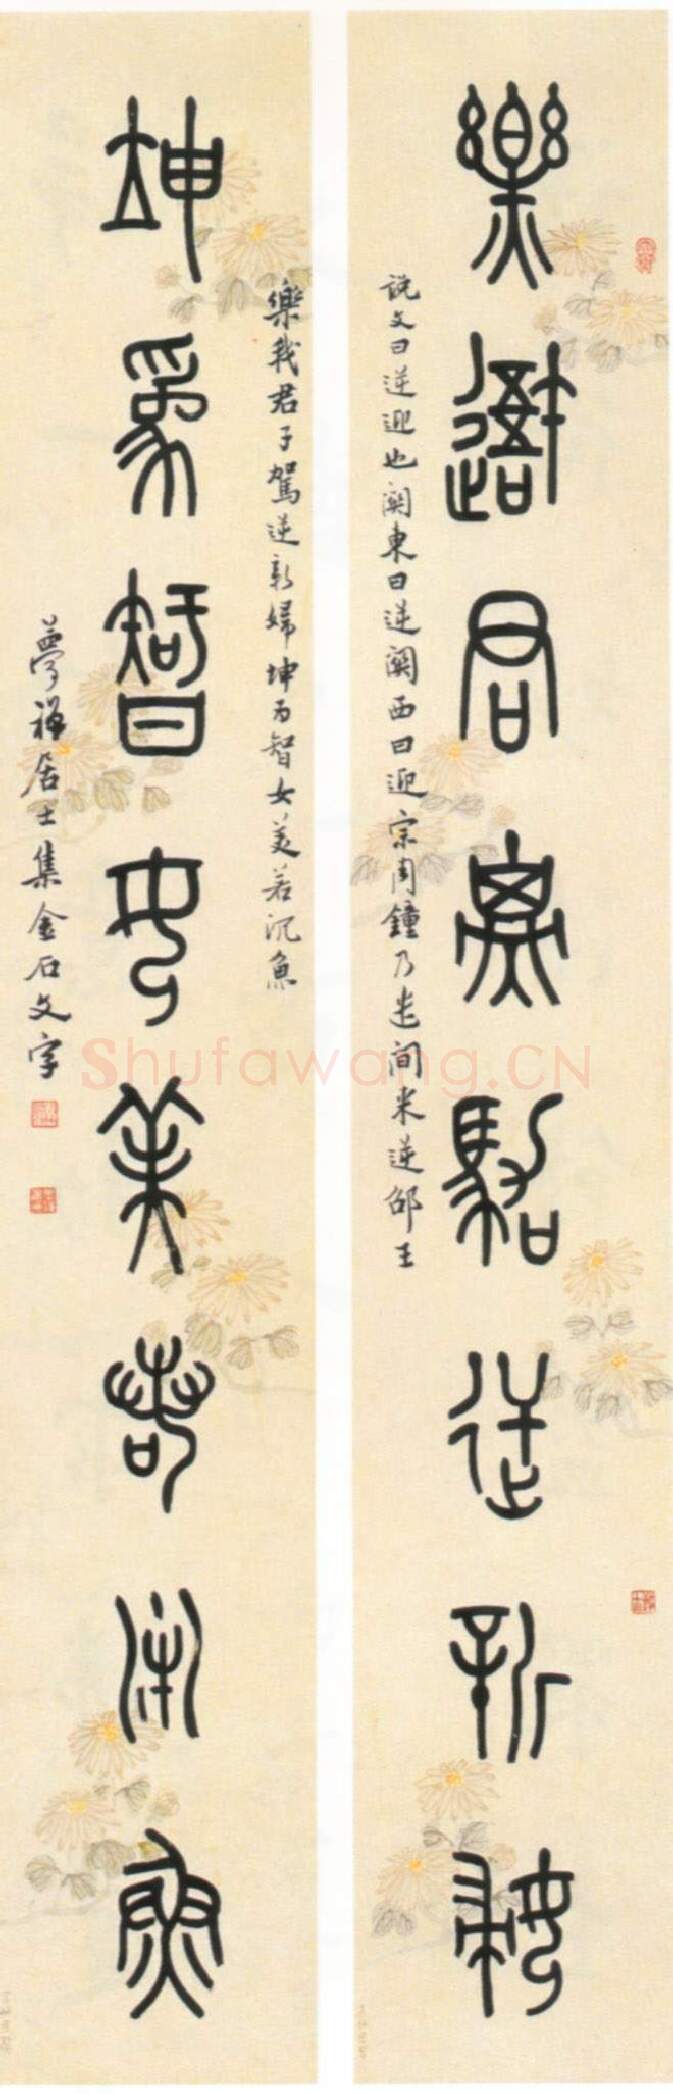 樂君子駕逆新婦
說文曰逆迎也關東曰逆關西曰迎宗周鐘乃遣间來逆邵王
坤為智女美若沉魚
樂我君子駕逆新婦坤为智女美若沉魚
夢禪居士集金石文字
Shufawang.CN